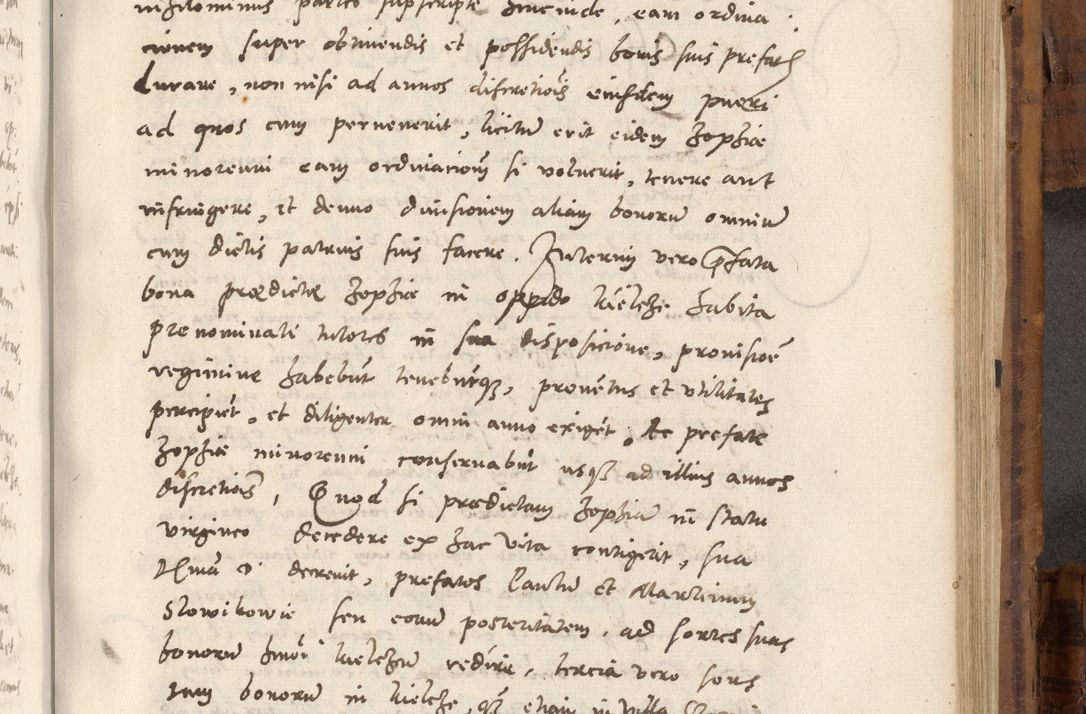 nihilominus partes supscripte hincinde, eam ordina
cionem super obtinendis et possidendis bonis suis prefatis
durare, non nisi ad annos discretiois eiusdem pueri
ad quos cum pervenerit, licitu erit eidem Zophiae
minorenni eam ordinacionem si voluerit, tenere aut
infringere, et denuo divisionem aliam bonoru omniu
cum dictis patruis suis facere. Interim vero pfata
bona praedictae Zophiae in oppido Kielcze habita
prenominati tutores in sua disposicione, provisioe
regimine habebut tenebutque, proventus et utilitates
percipiet, et diligenter omni anno exiget, Ac prefate
Zophiae minorenni conservabut usque ad illius annos
discretiois, Quod si praedictam Zophia in statu
virgineo decedere ex hac vita contigerit, sua
decrevit, prefatos et Martinum
Slowikowie seu eorum posteritatem, ad sortes suas
bonoru redire, tercia vero sors
bonoru in Kielcze, que etiam in villa